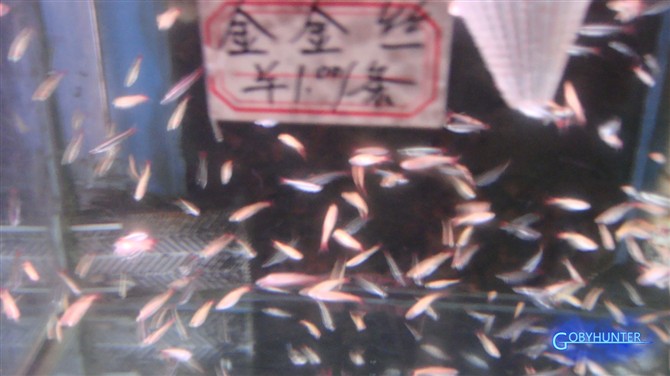 金金丝
￥1.00/条
GOBYHUNTER